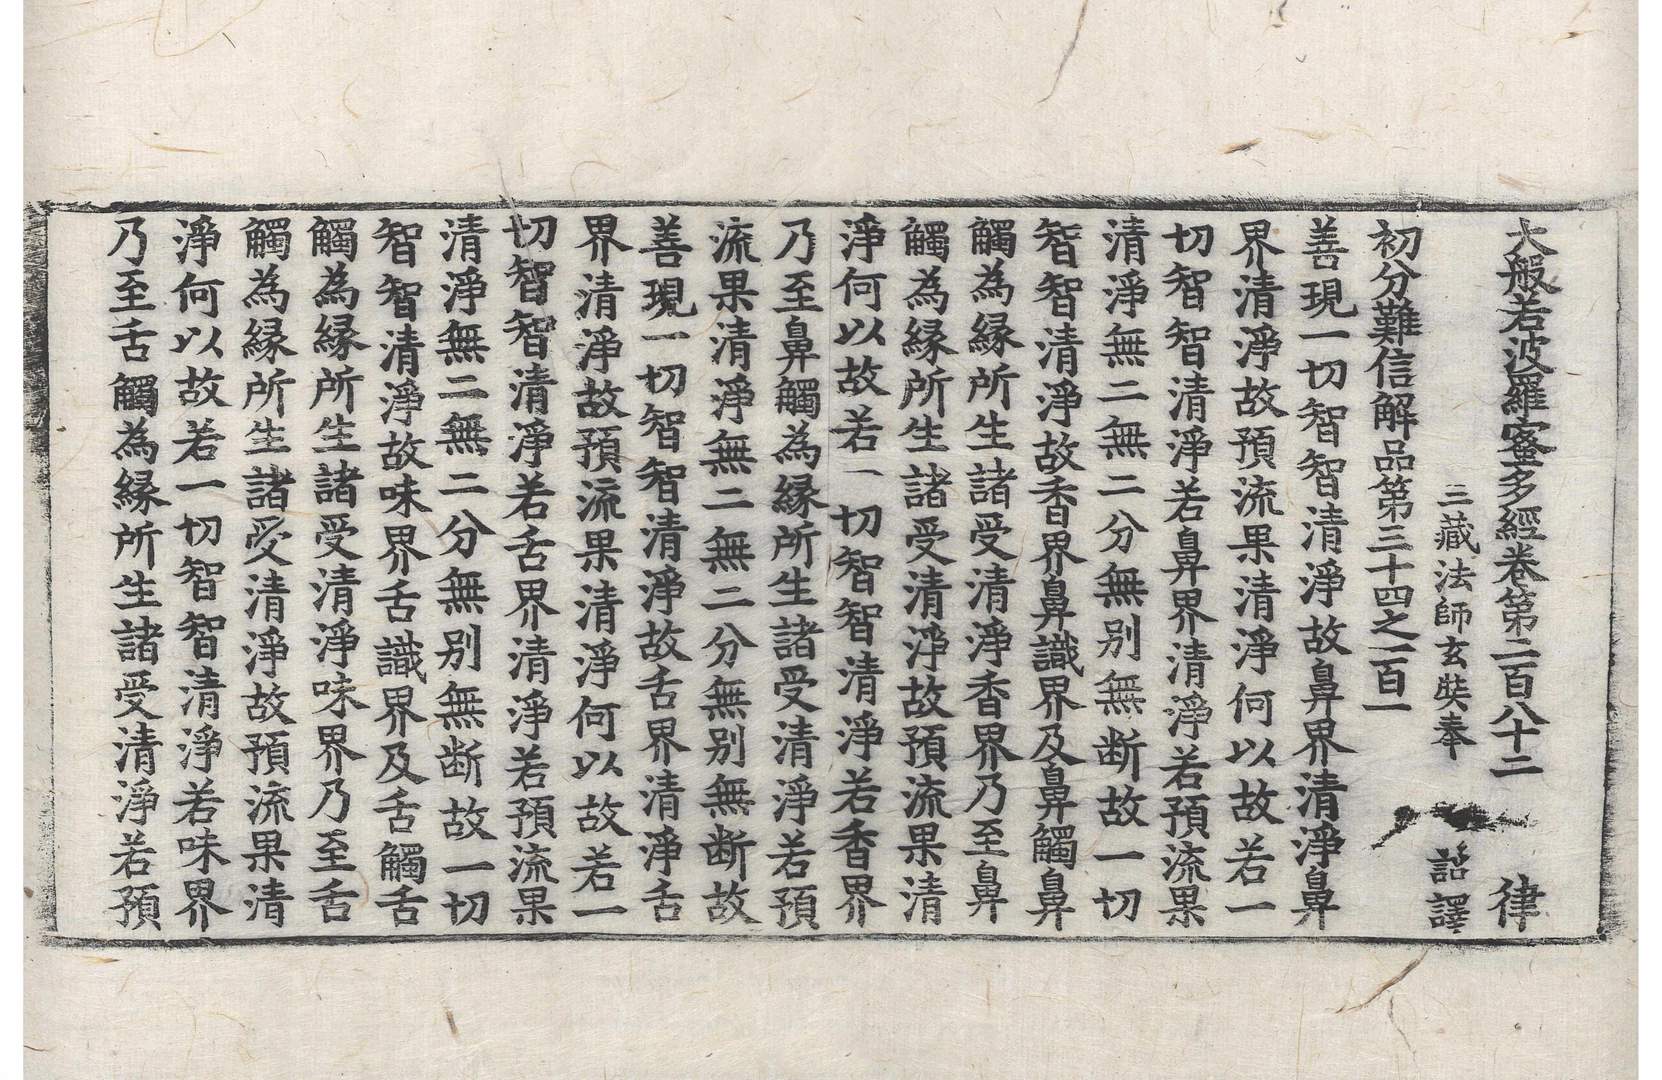 大般若波羅蜜多經卷第二百八十二 律
三藏法師玄奘奉 詔譯
初分難信解品第三十四之一百一
善現一切智智清淨故鼻界清淨鼻
界清淨故預流果清淨何以故若一
切智智清淨若鼻界清淨若預流果
清淨無二無二分無别無断故一切
智智清淨故香界鼻識界及鼻觸鼻
觸為緣所生諸受清淨香界乃至鼻
觸為緣所生諸受清淨故預流果清
淨何以故若一切智智清淨若香界
乃至鼻觸為緣所生諸受清淨若預
流果清淨無二無二分無别無断故
善現一切智智清淨故舌界清淨舌
界清淨故預流果清淨何以故若一
切智智清淨若舌界清淨若預流果
清淨無二無二分無别無断故一切
智智清淨故味界舌識界及舌觸舌
觸為緣所生諸受清淨味界乃至舌
觸為緣所生諸受清淨故預流果清
淨何以故若一切智智清淨若味界
乃至舌觸為緣所生諸受清淨若預